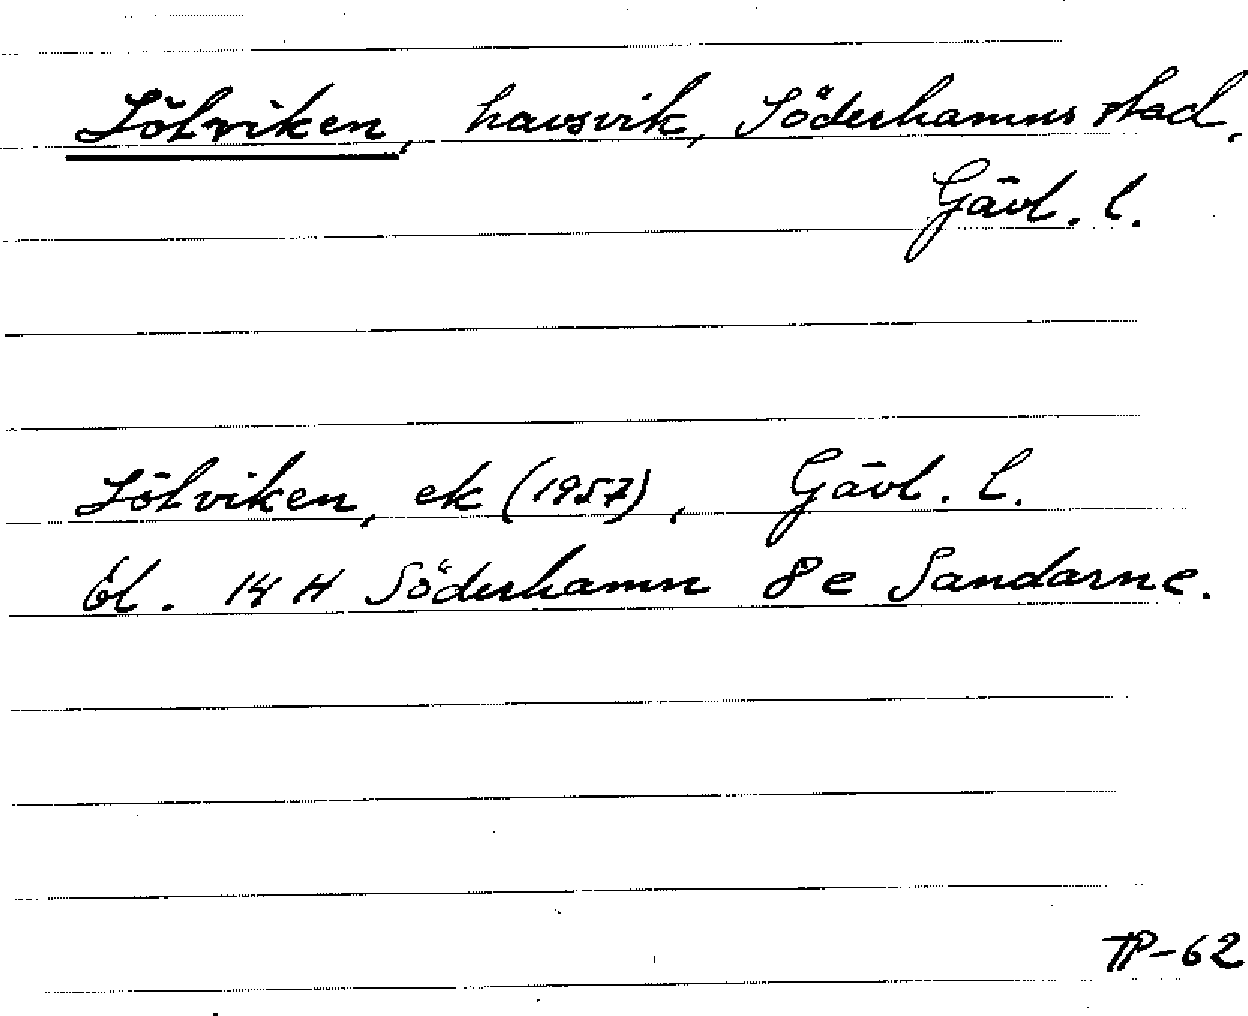 Lötviken, havsvik, Söderhamns stad.
Gävl. l.
Lötviken, ek (1957), Gävl. l.
bl. 14 H Söderhamn 8 e Sandarne.
TP-62